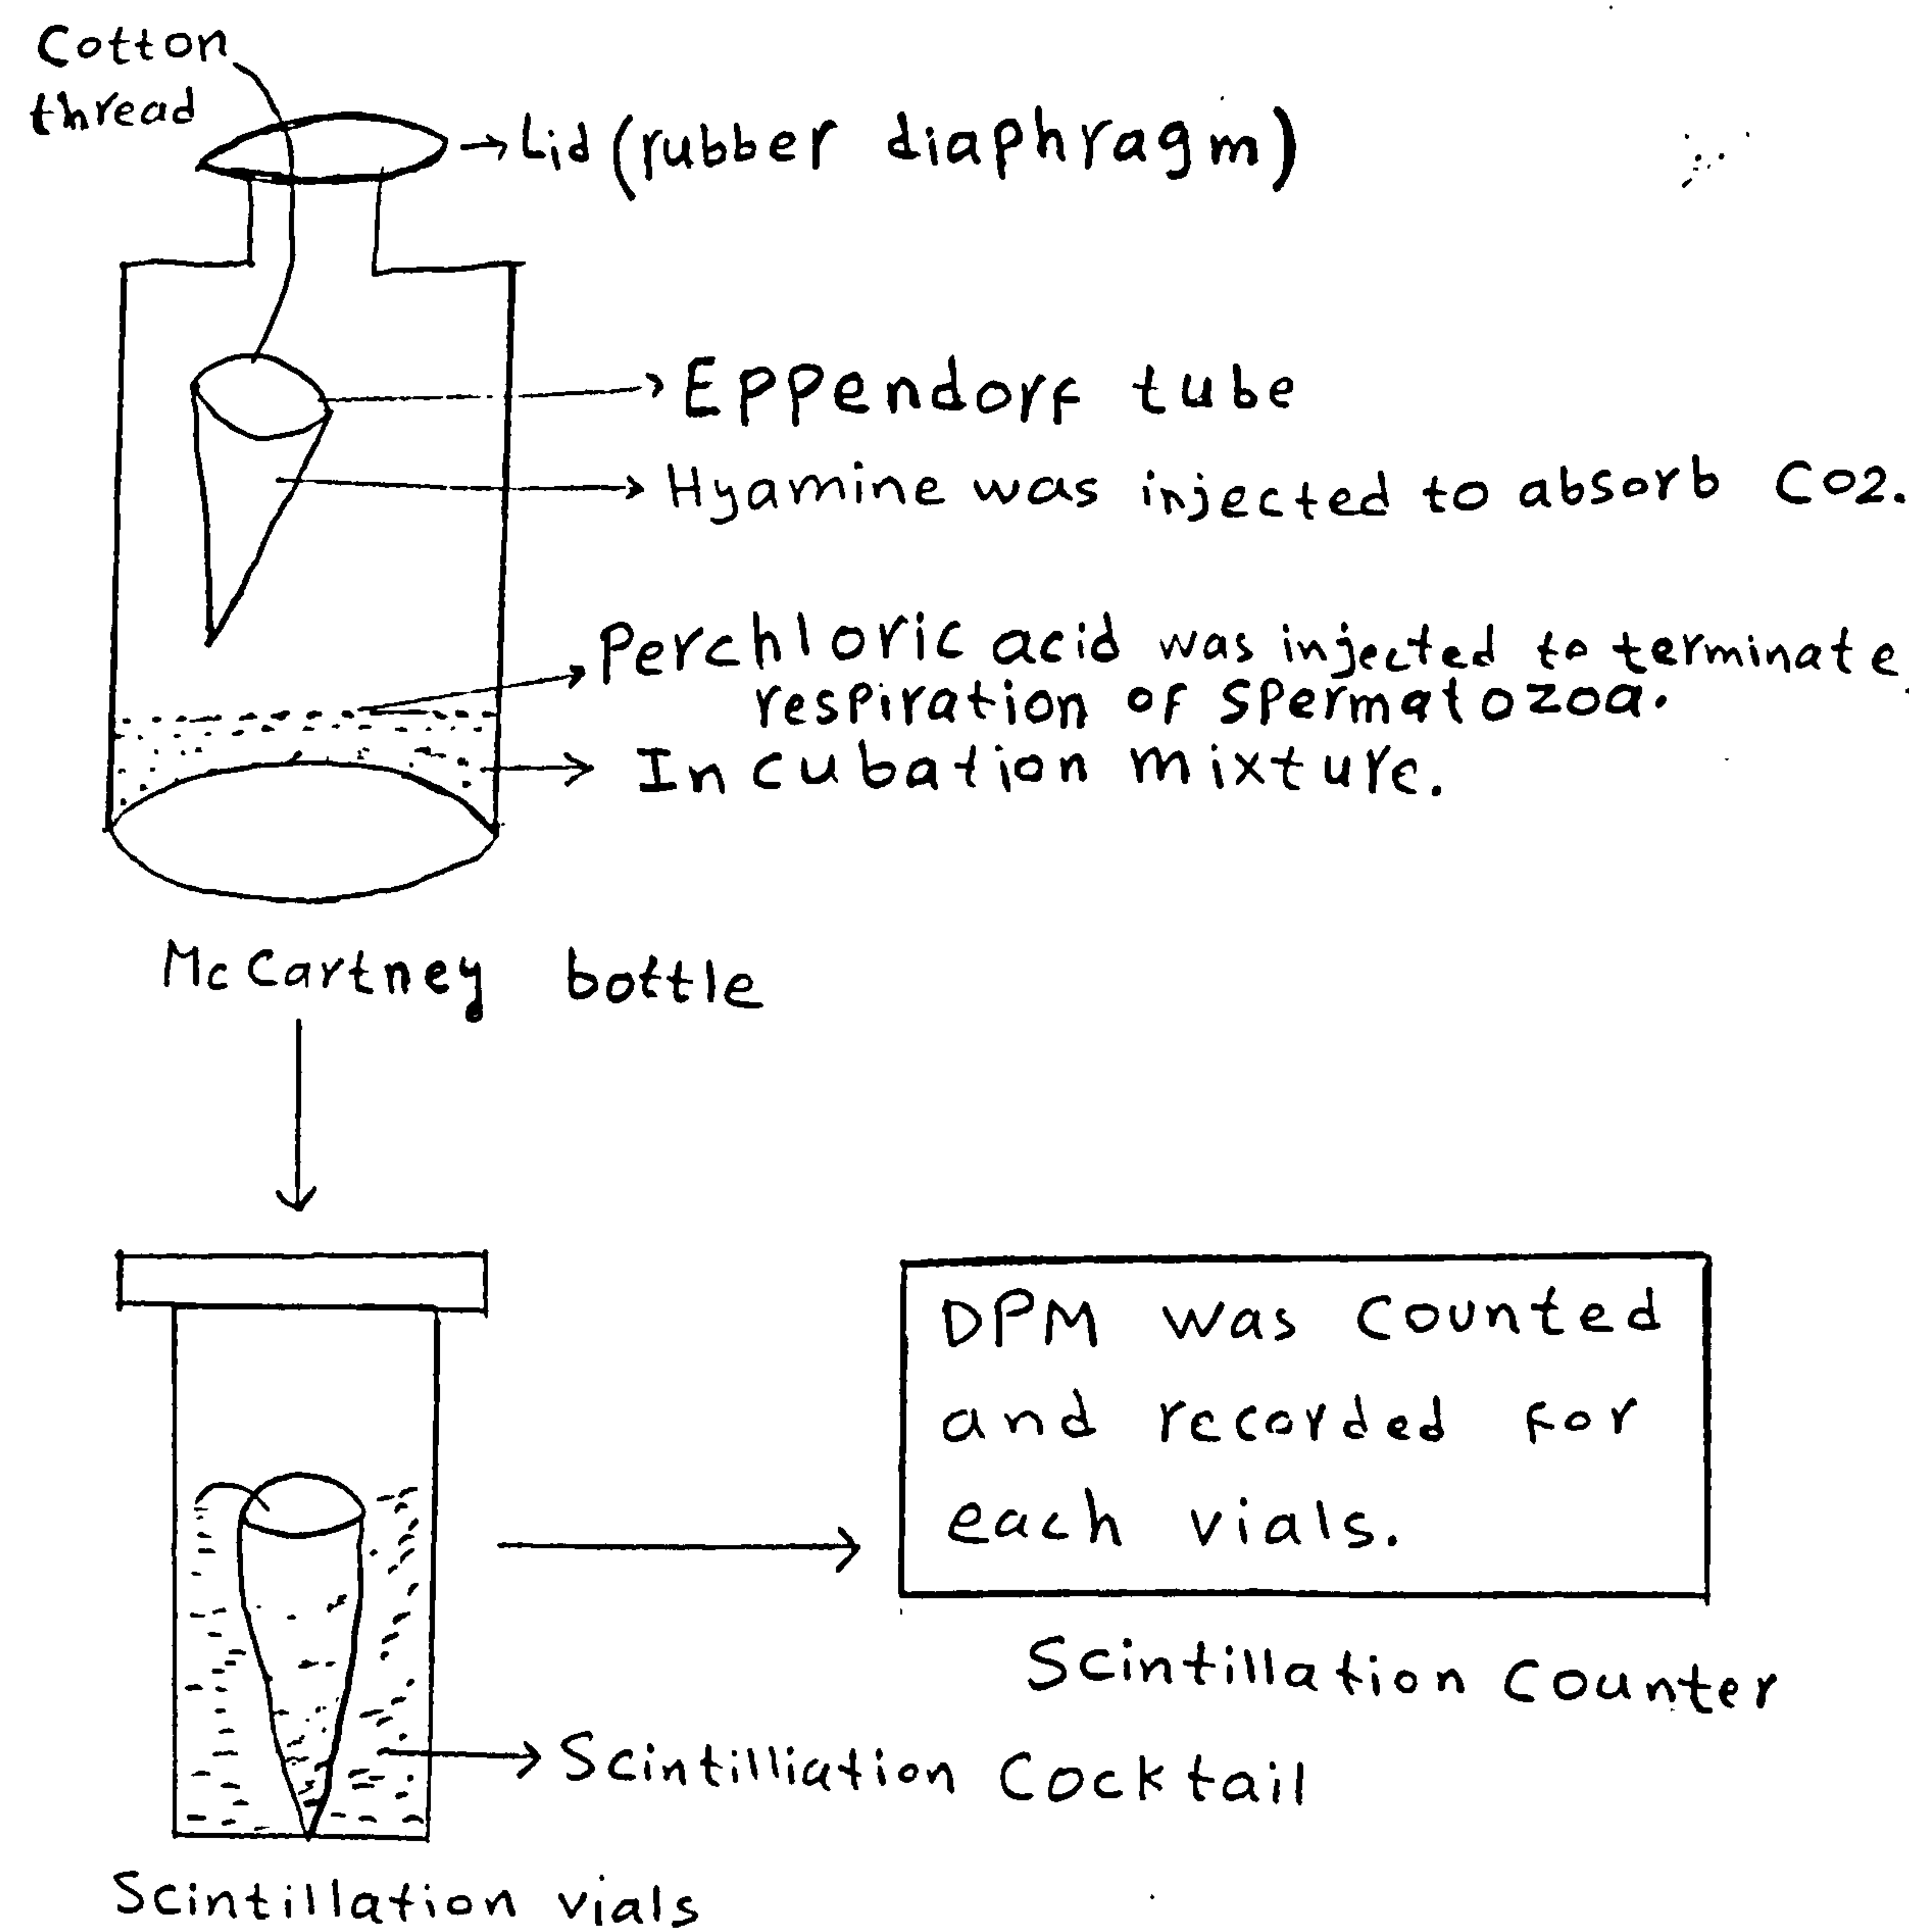 Cotton
thread
Lid (rubber diaphragm)
Eppendorf tube
Hyamine was injected to absorb CO2.
Perchloric acid was injected to terminate
respiration of spermatozoa.
Incubation mixture.
McCartney bottle
DPM was counted
and recorded for
each vials.
Scintillation Counter
Scintilliation Cocktail
Scintillation vials